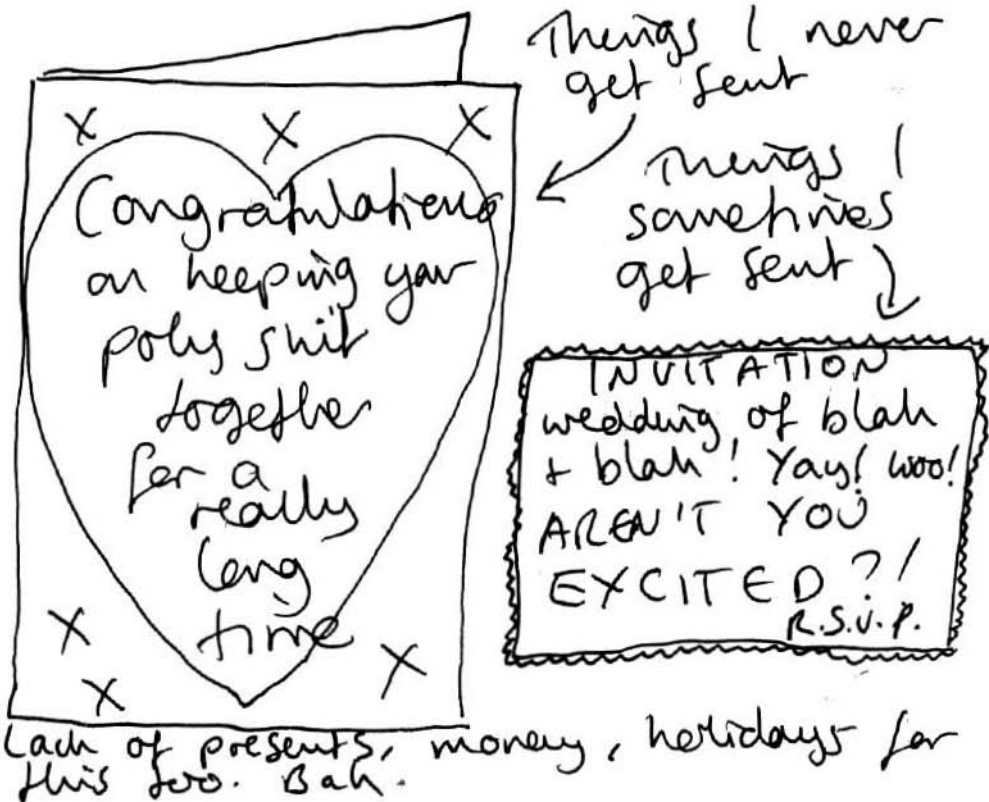 Things I never
get sent
Things I
sometimes
get sent
X X X
Congratulations
on keeping your
poly shit
together
for a
really
long
time
X X
X
INVITATION
wedding of blah
+ blah! Yay! woo!
AREN'T YOU
EXCITED?!
R.S.V.P.
Lack of presents, money, holidays for
this too. Bah.